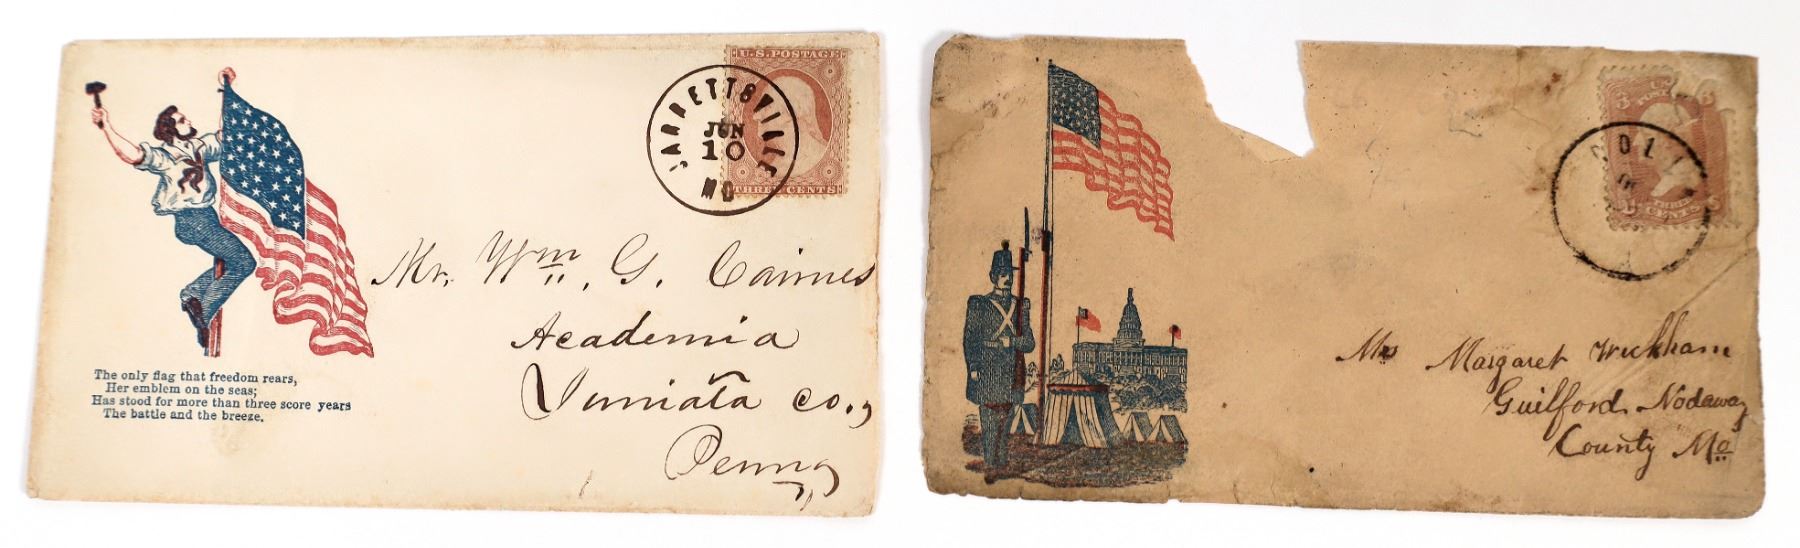 U.S. POSTAGE
THREE CENTS
JARRETTSVILLE
JUN
10
MD
The only flag that freedom rears,
Her emblem on the seas;
Has stood for more than three score years
The battle and the breeze.
Mr. Wm. G. Cairnes
Academia
Juniata Co.,
Penna
3
CENTS
Mrs Margaret Wickham
Guilford Nodaway
County Mo